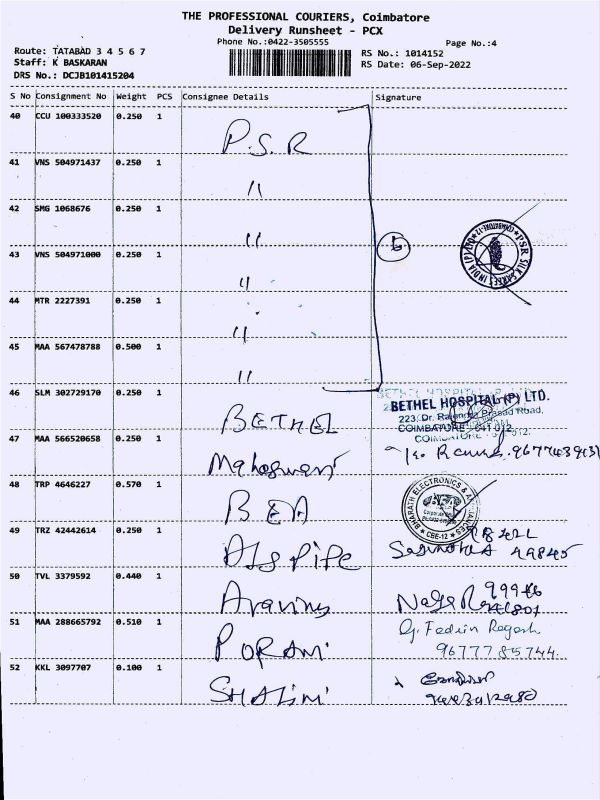 THE PROFESSIONAL COURIERS, Coimbatore
Delivery Runsheet - PCX
Phone No.:0422-3505555
Page No.:4
Route: TATABAD 3 4 5 6 7
Staff: K BASKARAN
DRS No.: DCJB101415204
RS No.: 1014152
RS Date: 06-Sep-2022
S No Consignment No Weight PCS Consignee Details Signature
40 CCU 100333520 0.250 1 P.S.R
41 VNS 504971437 0.250 1 "
42 SMG 1068676 0.250 1 "
43 VNS 504971000 0.250 1 "
6
44 MTR 2227391 0.250 1 "
45 MAA 567478788 0.500 1 "
46 SLM 302729170 0.250 1 BETHEL
BETHEL HOSPITAL (P) LTD.
223, Dr. Rajendra Prasad Road,
COIMBATORE - 641 012.
47 MAA 566520658 0.250 1 Maheswari
48 TRP 4646227 0.570 1 BEA
BHARATH ELECTRONICS & APPLIANCES
CBE-12
49 TRZ 42442614 0.250 1
50 TVL 3379592 0.440 1
51 MAA 288665792 0.510 1
9677785744
52 KKL 3097707 0.100 1 SHALINI